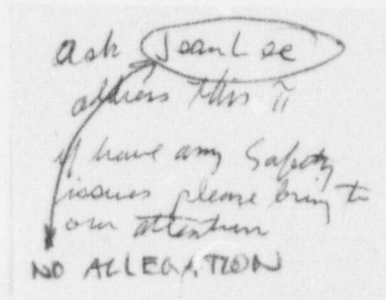 ask Jean Lee
address this π
if have any Safety
issues please bring to
our attention
NO ALLEGATION